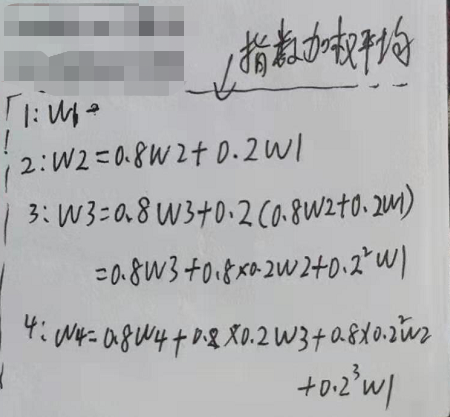 指数加权平均
1: W1
2: W2=0.8W2+0.2W1
3: W3=0.8W3+0.2(0.8W2+0.2W1)
=0.8W3+0.8×0.2W2+0.2²W1
4: W4=0.8W4+0.8×0.2W3+0.8×0.2²W2
+0.2³W1